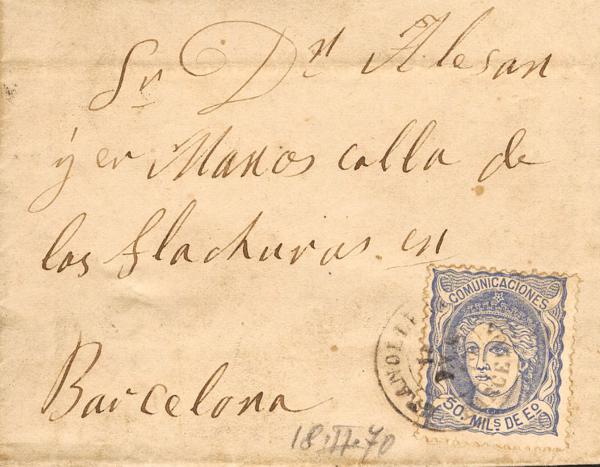 Sr Dn Alesan
y er Manos calla de
las flachuras en
Barcelona
COMUNICACIONES
50 MILS DE EO
18 II 70